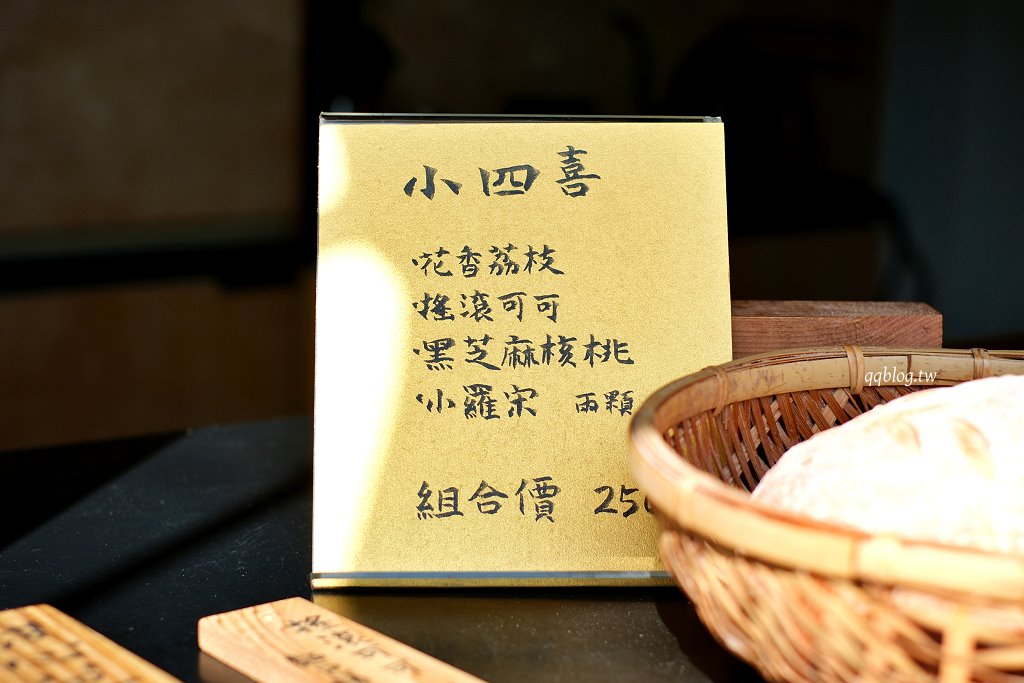 小四喜
·花香荔枝
·搖滾可可
·黑芝麻核桃
·小羅宋 兩顆
組合價 250
qqblog.tw